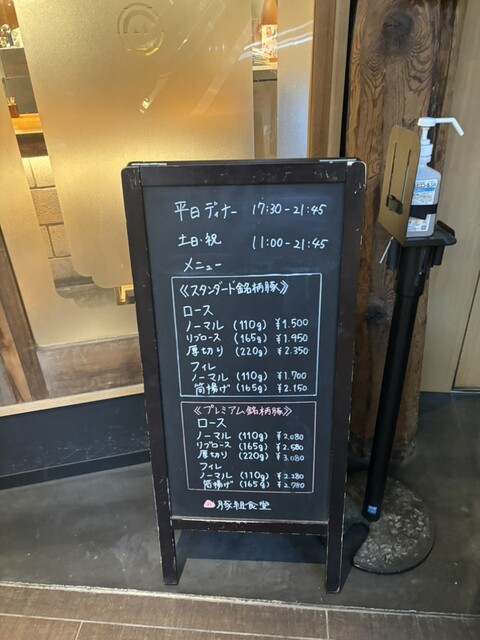 平日ディナー 17:30-21:45
土日・祝 11:00-21:45
メニュー
《スタンダード銘柄豚》
ロース
ノーマル (110g) ¥1.500
リブロース (165g) ¥1.950
厚切り (220g) ¥2.350
フィレ
ノーマル (110g) ¥1.700
筒揚げ (165g) ¥2.150
《プレミアム銘柄豚》
ロース
ノーマル (110g) ¥2.080
リブロース (165g) ¥2.580
厚切り (220g) ¥3.080
フィレ
ノーマル (110g) ¥2.280
筒揚げ (165g) ¥2.780
豚組食堂